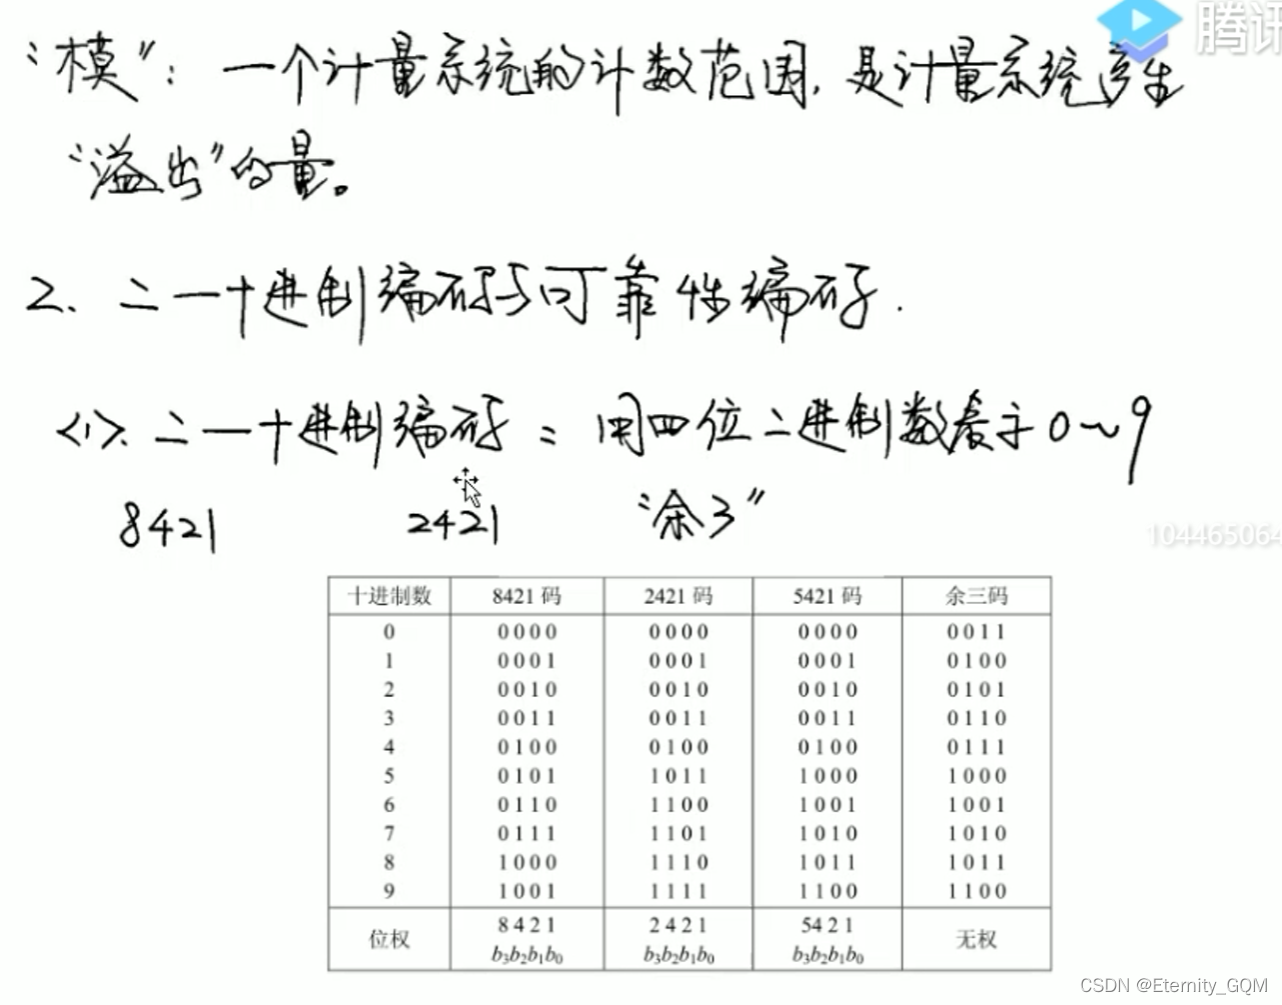 腾讯
“模”：一个计量系统的计数范围，是计量系统产生
“溢出”的量。
2、二—十进制编码与可靠性编码.
<1>、二—十进制编码：用四位二进制数表示0~9
8421 2421 “余3”
104465064
十进制数 8421 码 2421 码 5421 码 余三码
0 0 0 0 0 0 0 0 0 0 0 0 0 0 0 1 1
1 0 0 0 1 0 0 0 1 0 0 0 1 0 1 0 0
2 0 0 1 0 0 0 1 0 0 0 1 0 0 1 0 1
3 0 0 1 1 0 0 1 1 0 0 1 1 0 1 1 0
4 0 1 0 0 0 1 0 0 0 1 0 0 0 1 1 1
5 0 1 0 1 1 0 1 1 1 0 0 0 1 0 0 0
6 0 1 1 0 1 1 0 0 1 0 0 1 1 0 0 1
7 0 1 1 1 1 1 0 1 1 0 1 0 1 0 1 0
8 1 0 0 0 1 1 1 0 1 0 1 1 1 0 1 1
9 1 0 0 1 1 1 1 1 1 1 0 0 1 1 0 0
位权 8 4 2 1 2 4 2 1 5 4 2 1 无权
b₃b₂b₁b₀ b₃b₂b₁b₀ b₃b₂b₁b₀
CSDN @Eternity_GQM